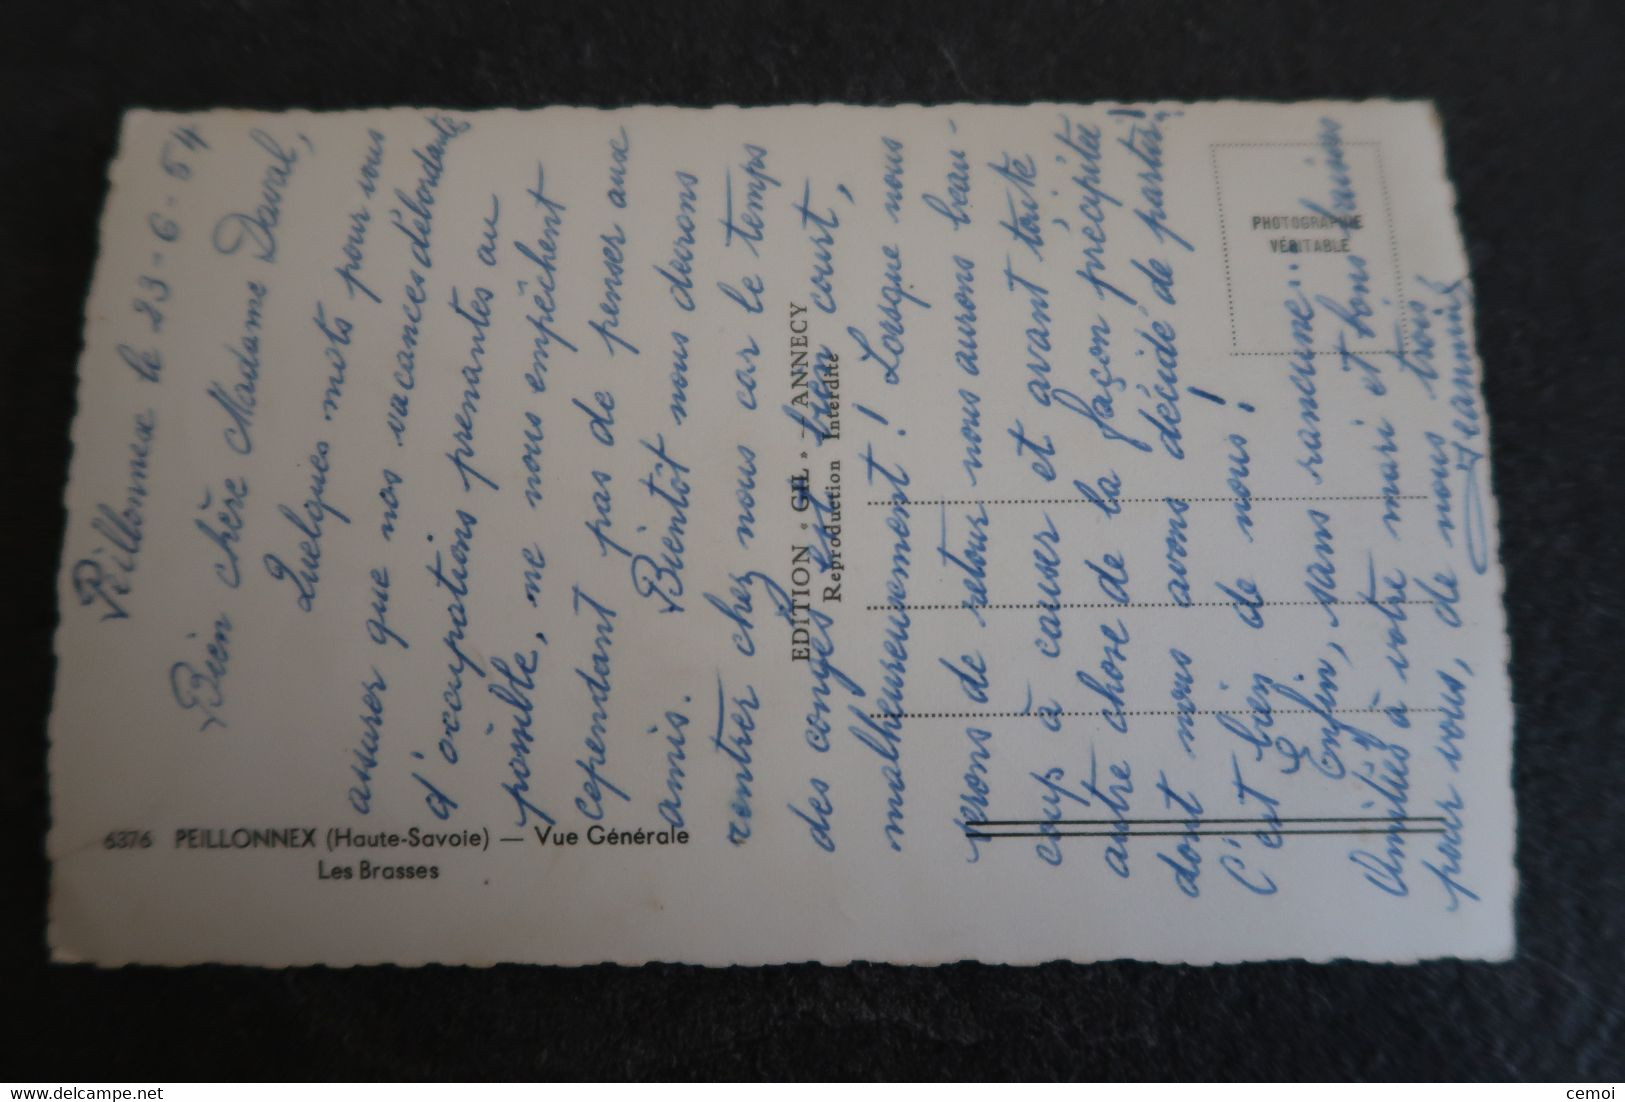 Peillonnex le 23-6-54
Bien chère Madame Duval,
Quelques mots pour vous
assurer que nos vacances débordantes
d'occupations prenantes au
possible, ne nous empêchent
cependant pas de penser aux
amis. Bientôt nous devrons
rentrer chez nous car le temps
des congés est bien court,
malheureusement! Lorsque nous
serons de retour nous aurons beau-
coup à causer et avant toute
autre chose de la façon précipitée
dont nous avons décidé de partir!
C'est loin de nous!
Enfin, sans rancune... bons baisers
Amitiés à votre mari et
pour vous, de nous trois
Jeannine
6376 PEILLONNEX (Haute-Savoie) — Vue Générale
Les Brasses
EDITION « GIL » — ANNECY
Reproduction Interdite
PHOTOGRAPHIE
VÉRITABLE
cemoi